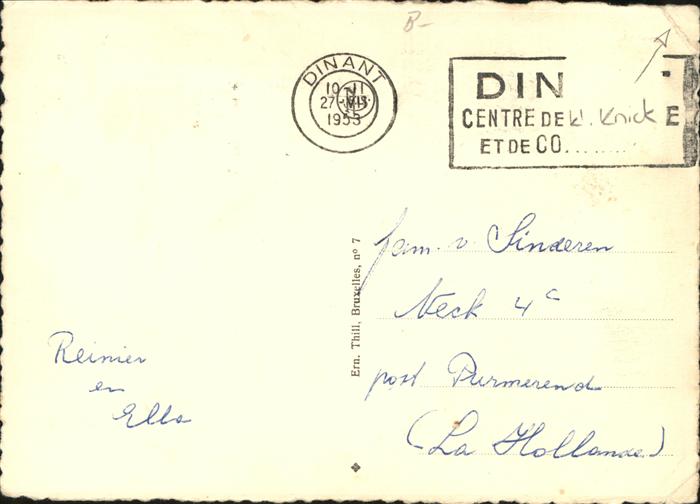 B-
DINANT
10-11
27-VII
1953
DIN
CENTRE DE kl. Knick E
ET DE CO........
fam. v. Sinderen
Neck 4c
post Purmerend
(La Hollande)
Ern. Thill, Bruxelles, nº 7
Reinier
en
Ella